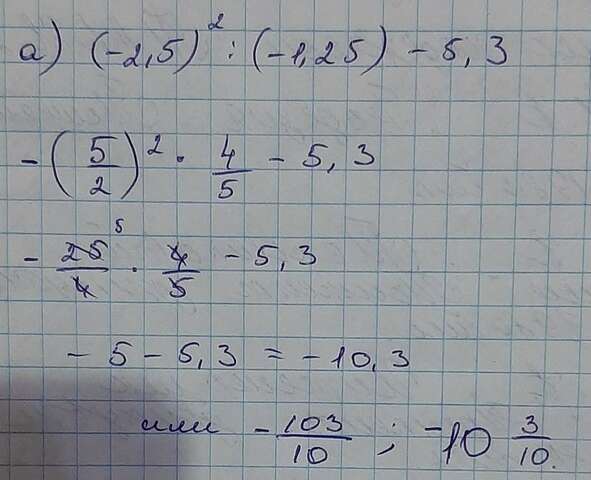 а) (-2,5)² : (-1,25) - 5,3
-(5/2)² · 4/5 - 5,3
- 25/4 · 4/5 - 5,3 5
- 5 - 5,3 = -10,3
или - 103/10 ; -10 3/10.